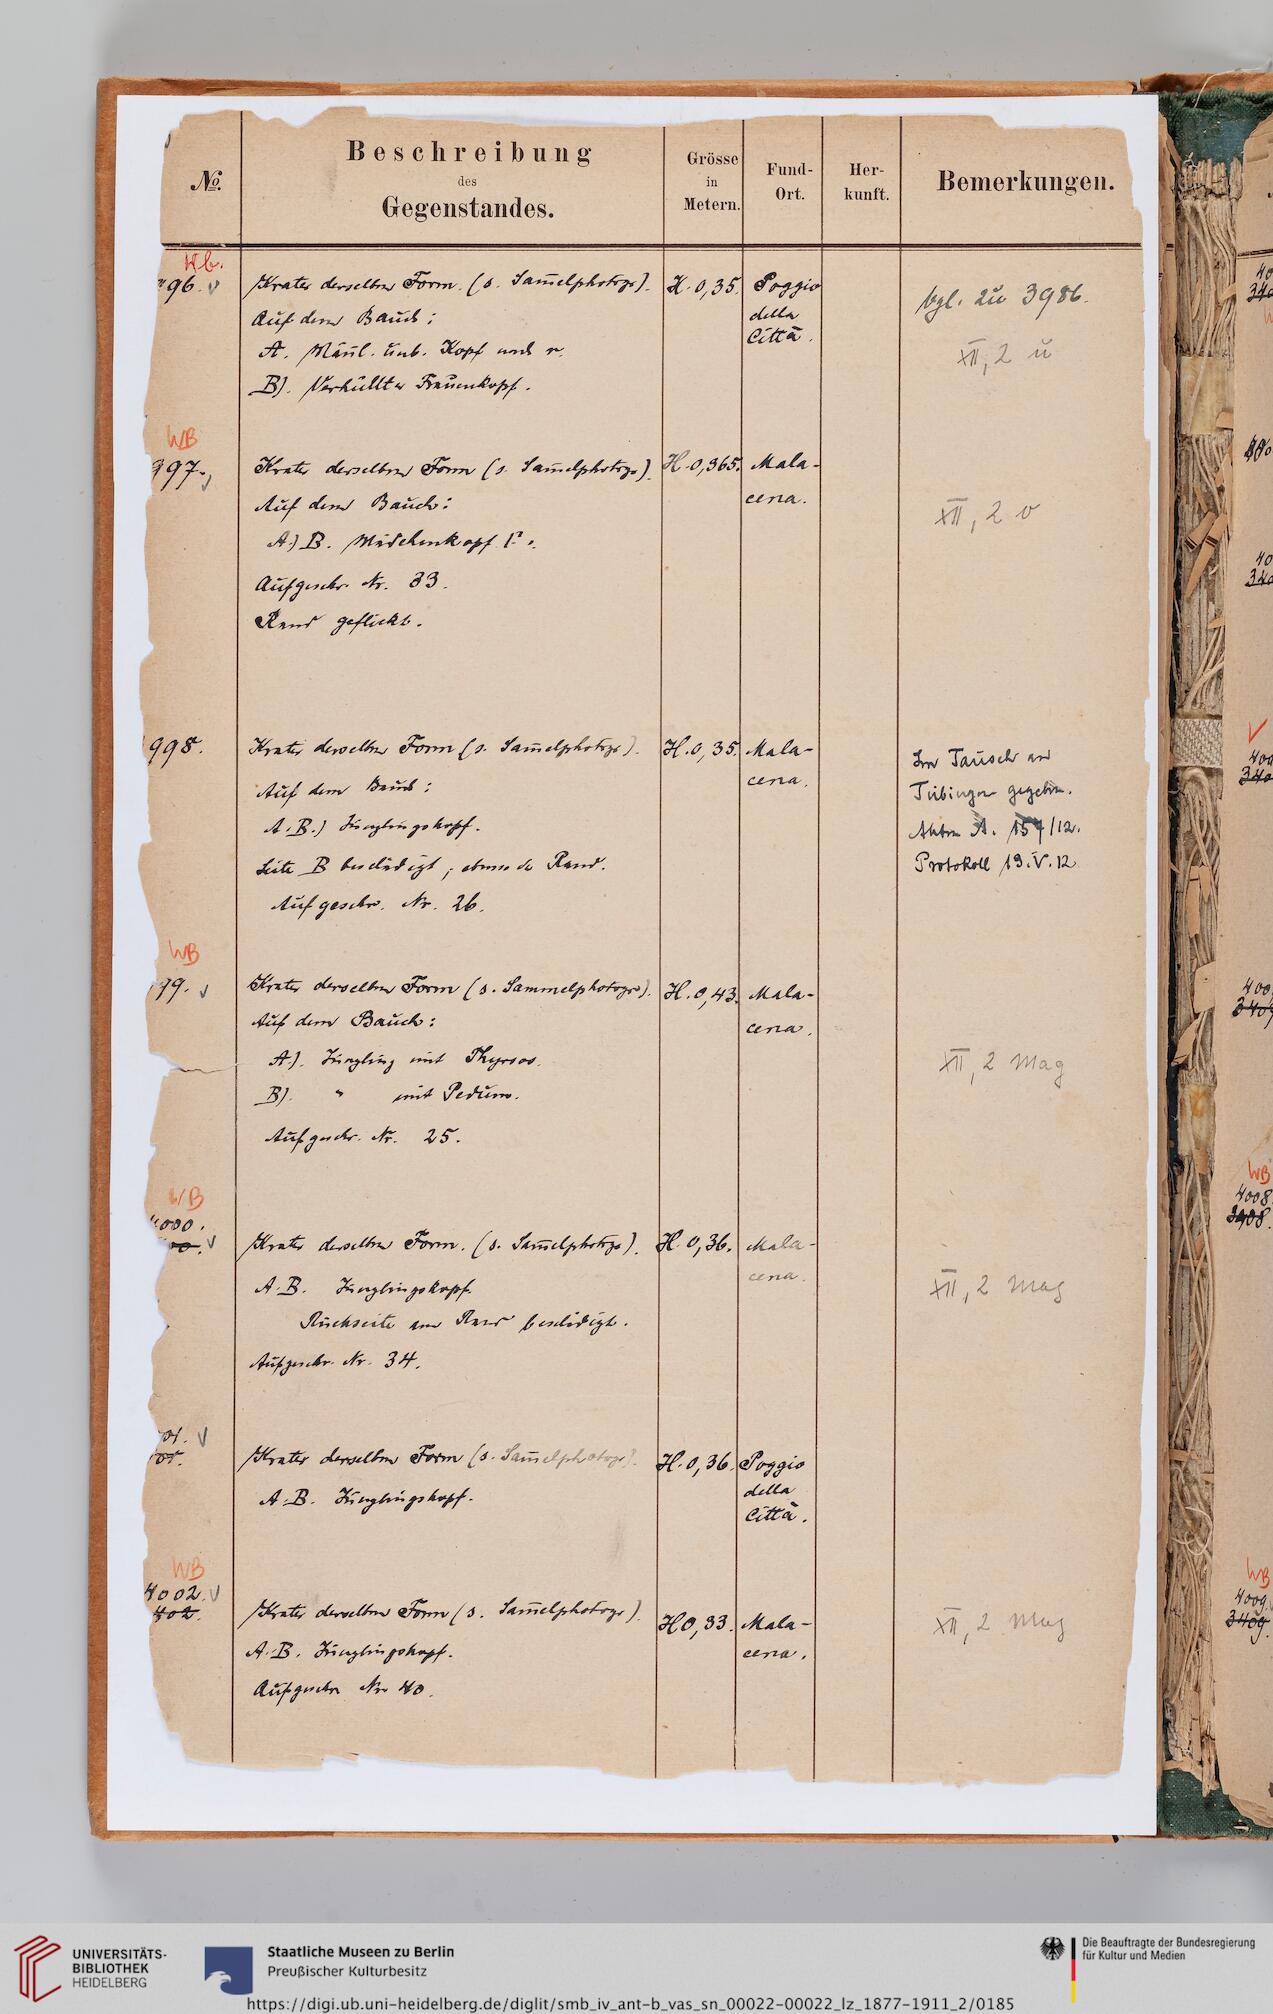 No. Beschreibung des Gegenstandes. Grösse in Metern. Fund-Ort. Her-kunft. Bemerkungen.
96. Krater derselben Form. (s. Sam̄elphotogr). H. 0,35. Poggio della Città. vgl. zu 3986.
Auf dem Bauch:
A. Männl. unb. Kopf nach r. XII, 2 u
B). Verhüllter Frauenkopf.
WB
997. Krater derselben Form (s. Sam̄elphotogr). H. 0,365. Mala-cena.
Auf dem Bauch: XII, 2 o
A.) B. Mädchenkopf
Aufgeschr. Nr. 33.
Rand geflickt.
998. Krater derselben Form (s. Sam̄elphotogr). H. 0,35. Mala-cena. Im Tausch an
Auf dem Bauch: Tübingen gegeben.
A. B.) Jünglingskopf. Akten A. 157/12.
Seite B beschädigt, ebenso der Rand. Protokoll 19.V.12
Aufgeschr. Nr. 26.
WB
99. Krater derselben Form (s. Sammelphotogr). H. 0,43. Mala-cena.
Auf dem Bauch:
A). Jüngling mit Thyrsos. XII, 2 Mag
B). " mit Pedum.
Aufgeschr. Nr. 25.
WB
4000.
Krater derselben Form. (s. Sam̄elphotogr). H. 0,36. Mala-cena.
A. B. Jünglingskopf. XII, 2 Mag
Rückseite am Rand beschädigt.
Aufgeschr. Nr. 34.
01.
Krater derselben Form (s. Sam̄elphotogr). H. 0,36. Poggio della Città.
A. B. Jünglingskopf.
WB
4002.
402. Krater derselben Form (s. Sam̄elphotogr). H 0,33. Mala-cena. XII, 2 Mag
A. B. Jünglingskopf.
Aufgeschr Nr 40.
WB
4008.
WB
4009.
UNIVERSITÄTS-
BIBLIOTHEK
HEIDELBERG
Staatliche Museen zu Berlin
Preußischer Kulturbesitz
Die Beauftragte der Bundesregierung
für Kultur und Medien
https://digi.ub.uni-heidelberg.de/diglit/smb_iv_ant-b_vas_sn_00022-00022_lz_1877-1911_2/0185